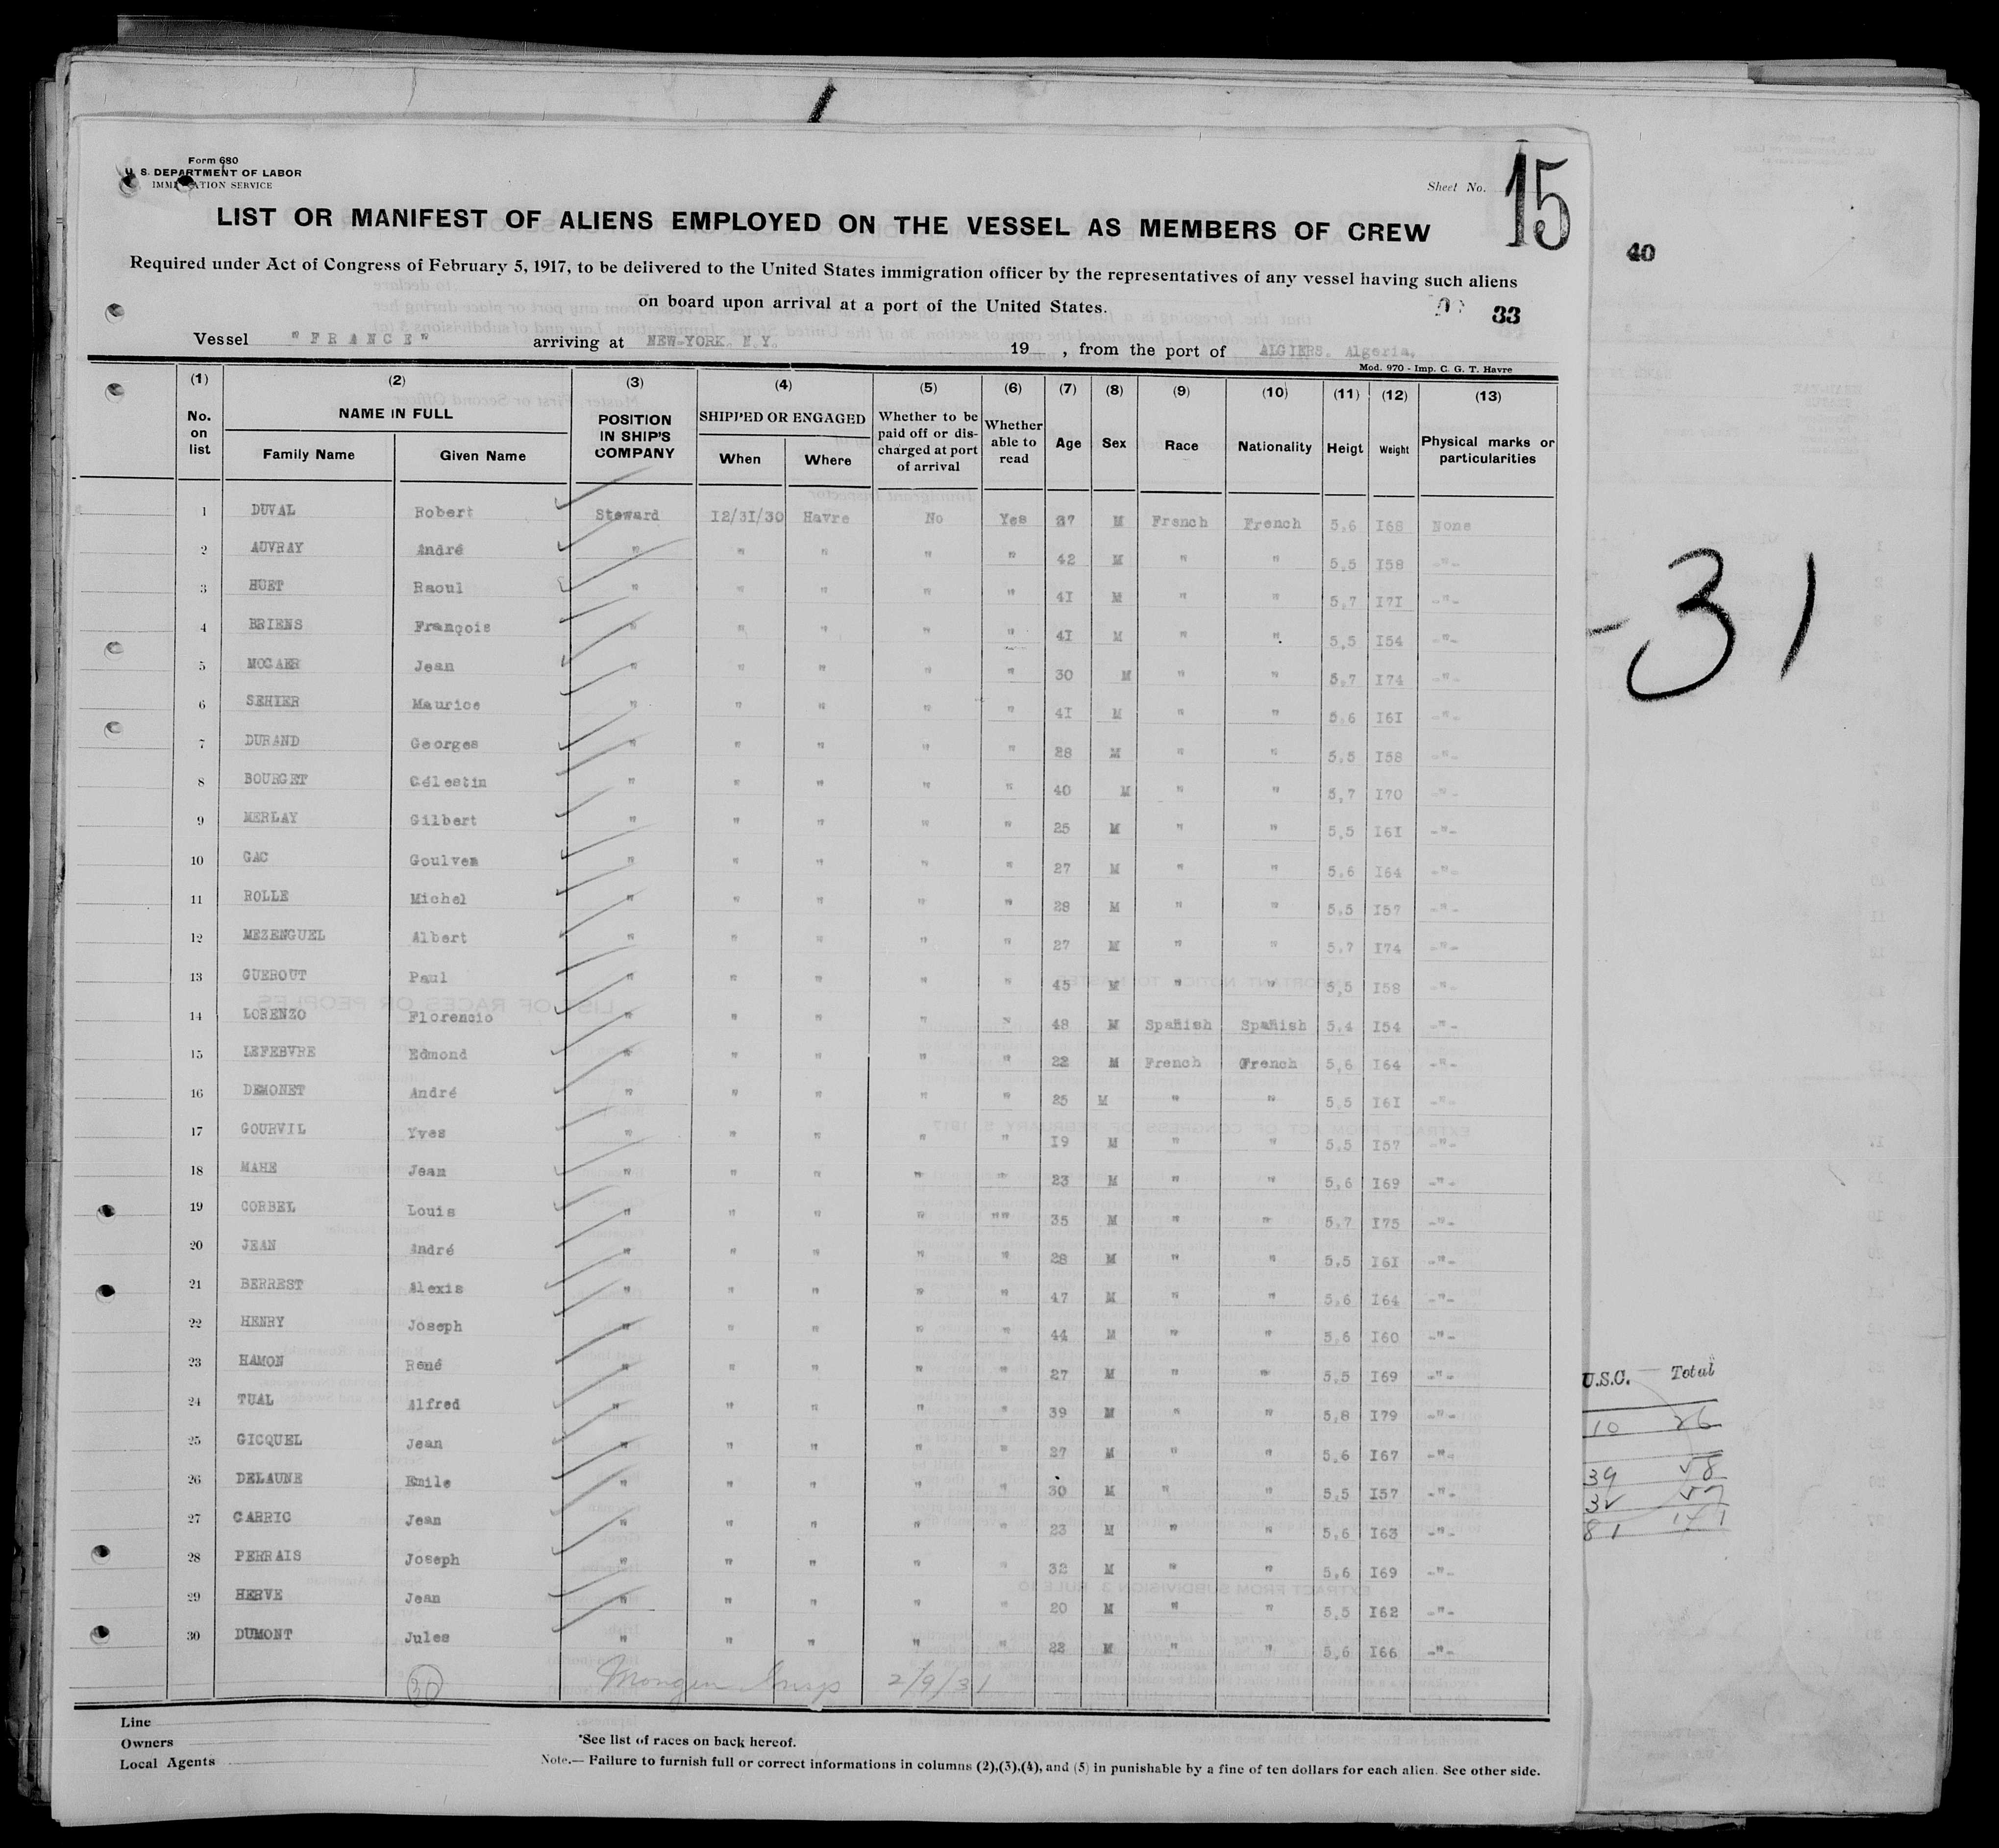 Form 680
U. S. DEPARTMENT OF LABOR
IMMIGRATION SERVICE
Sheet No. 15
LIST OR MANIFEST OF ALIENS EMPLOYED ON THE VESSEL AS MEMBERS OF CREW
40
Required under Act of Congress of February 5, 1917, to be delivered to the United States immigration officer by the representatives of any vessel having such aliens
on board upon arrival at a port of the United States.
33
Vessel "FRANCE" arriving at NEW-YORK. N.Y. 19 , from the port of ALGIERS. Algeria.
Mod. 970 - Imp. C. G. T. Havre
(1) (2) (3) (4) (5) (6) (7) (8) (9) (10) (11) (12) (13)
No. on list NAME IN FULL Family Name Given Name POSITION IN SHIP'S COMPANY SHIPPED OR ENGAGED When Where Whether to be paid off or discharged at port of arrival Whether able to read Age Sex Race Nationality Heigt Weight Physical marks or particularities
1 DUVAL Robert Steward I2/3I/30 Havre No Yes 37 M French French 5,6 I68 None
2 AUVRAY André " " " " " 42 M " " 5,5 I58 -"-
3 HUET Raoul " " " " " 4I M " " 5,7 I7I -"-
4 BRIENS François " " " " " 4I M " " 5,5 I54 -"-
5 MOCAER Jean " " " " " 30 M " " 5,7 I74 -"-
6 SEHIER Maurice " " " " " 4I M " " 5,6 I6I -"-
7 DURAND Georges " " " " " 28 M " " 5,5 I58 -"-
8 BOURGET Célestin " " " " " 40 M " " 5,7 I70 -"-
9 MERLAY Gilbert " " " " " 25 M " " 5,5 I6I -"-
10 GAC Goulven " " " " " 27 M " " 5,6 I64 -"-
11 ROLLE Michel " " " " " 28 M " " 5,5 I57 -"-
12 MEZENGUEL Albert " " " " " 27 M " " 5,7 I74 -"-
13 GUEROUT Paul " " " " " 45 M " " 5,5 I58 -"-
14 LORENZO Florencio " " " " " 48 M Spañish Spañish 5,4 I54 -"-
15 LEFEBVRE Edmond " " " " " 22 M French French 5,6 I64 -"-
16 DEMONET André " " " " " 25 M " " 5,5 I6I -"-
17 GOURVIL Yves " " " " " I9 M " " 5,5 I57 -"-
18 MAHE Jean " " " " " 23 M " " 5,6 I69 -"-
19 CORBEL Louis " " " " "" 35 M " " 5,7 I75 -"-
20 JEAN André " " " " " 28 M " " 5,5 I6I -"-
21 BERREST Alexis " " " " " 47 M " " 5,6 I64 -"-
22 HENRY Joseph " " " " " 44 M " " 5,6 I60 -"-
23 HAMON René " " " " " 27 M " " 5,5 I69 -"-
24 TUAL Alfred " " " " " 39 M " " 5,8 I79 -"-
25 GICQUEL Jean " " " " " 27 M " " 5,6 I67 -"-
26 DELAUNE Emile " " " " " 30 M " " 5,5 I57 -"-
27 CARRIC Jean " " " " " 23 M " " 5,6 I63 -"-
28 PERRAIS Joseph " " " " " 32 M " " 5,6 I69 -"-
29 HERVE Jean " " " " " 20 M " " 5,5 I62 -"-
30 DUMONT Jules " " " " " 22 M " " 5,6 I66 -"-
30 Insp 2/9/31
-31
U.S.C. Total
10 26
39 58
32 57
81 141
Line
Owners
Local Agents
*See list of races on back hereof.
Note.— Failure to furnish full or correct informations in columns (2),(3),(4), and (5) in punishable by a fine of ten dollars for each alien. See other side.